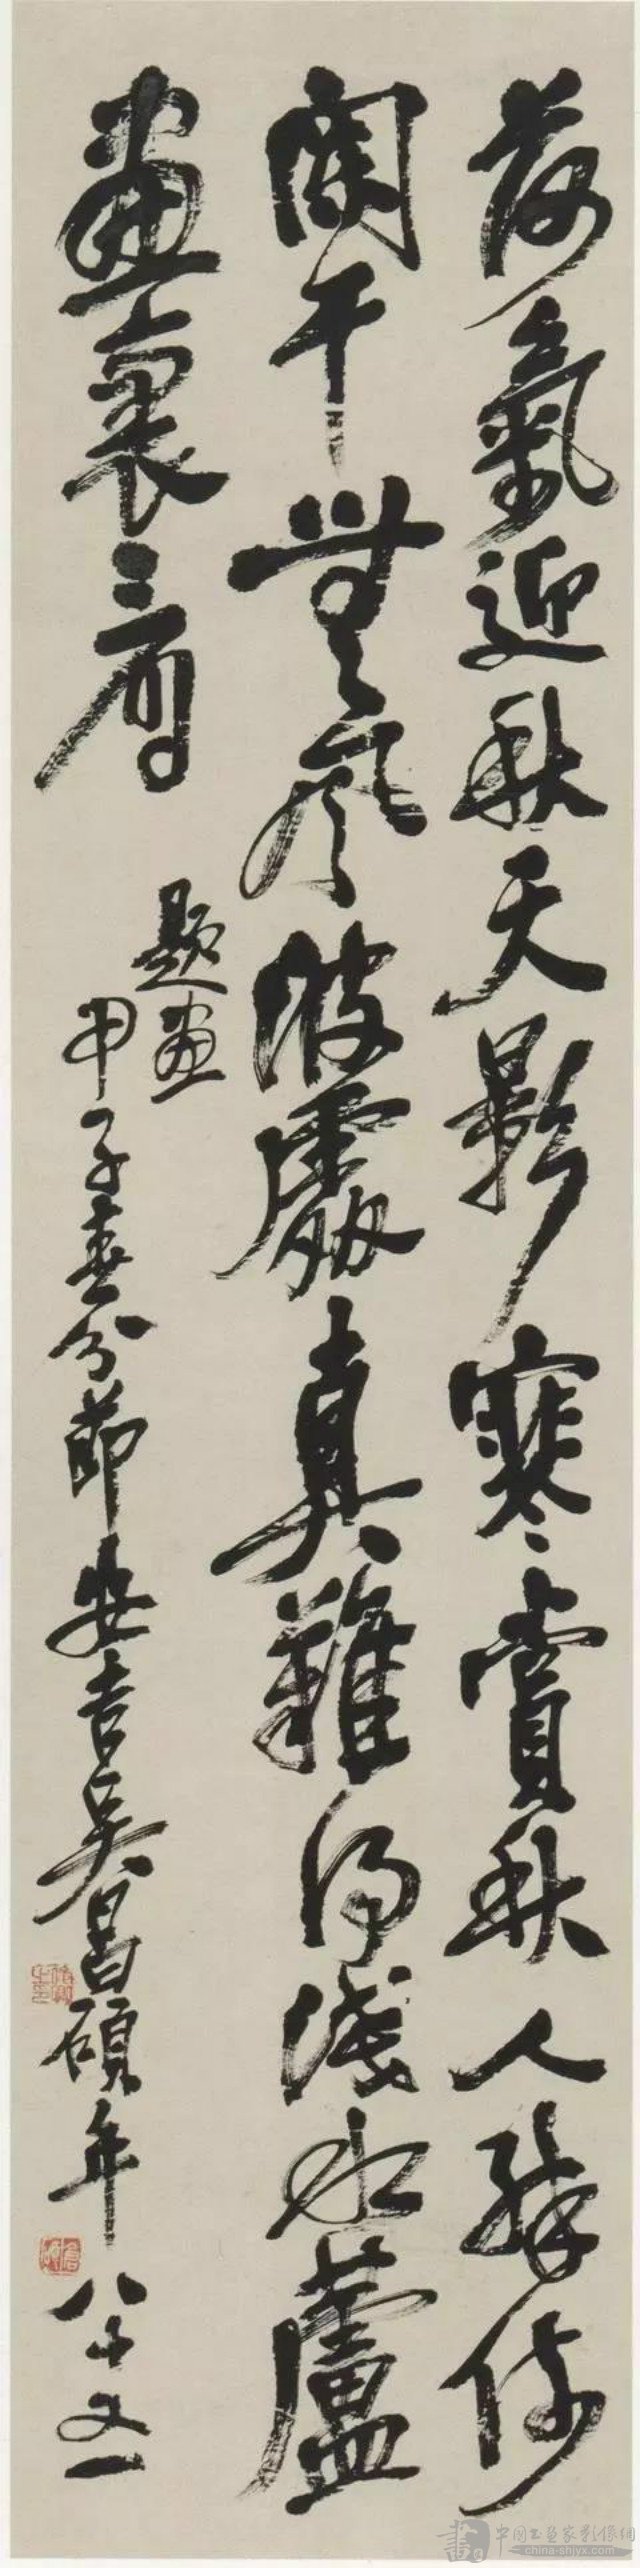 荷氣迎秋天影寒賞秋人醉倚
闌干無風波處真難得淺水蘆
畫裏看
題畫
甲子春分節安吉吳昌碩年八十又一
中國书画家影像網
china-shjyx.com